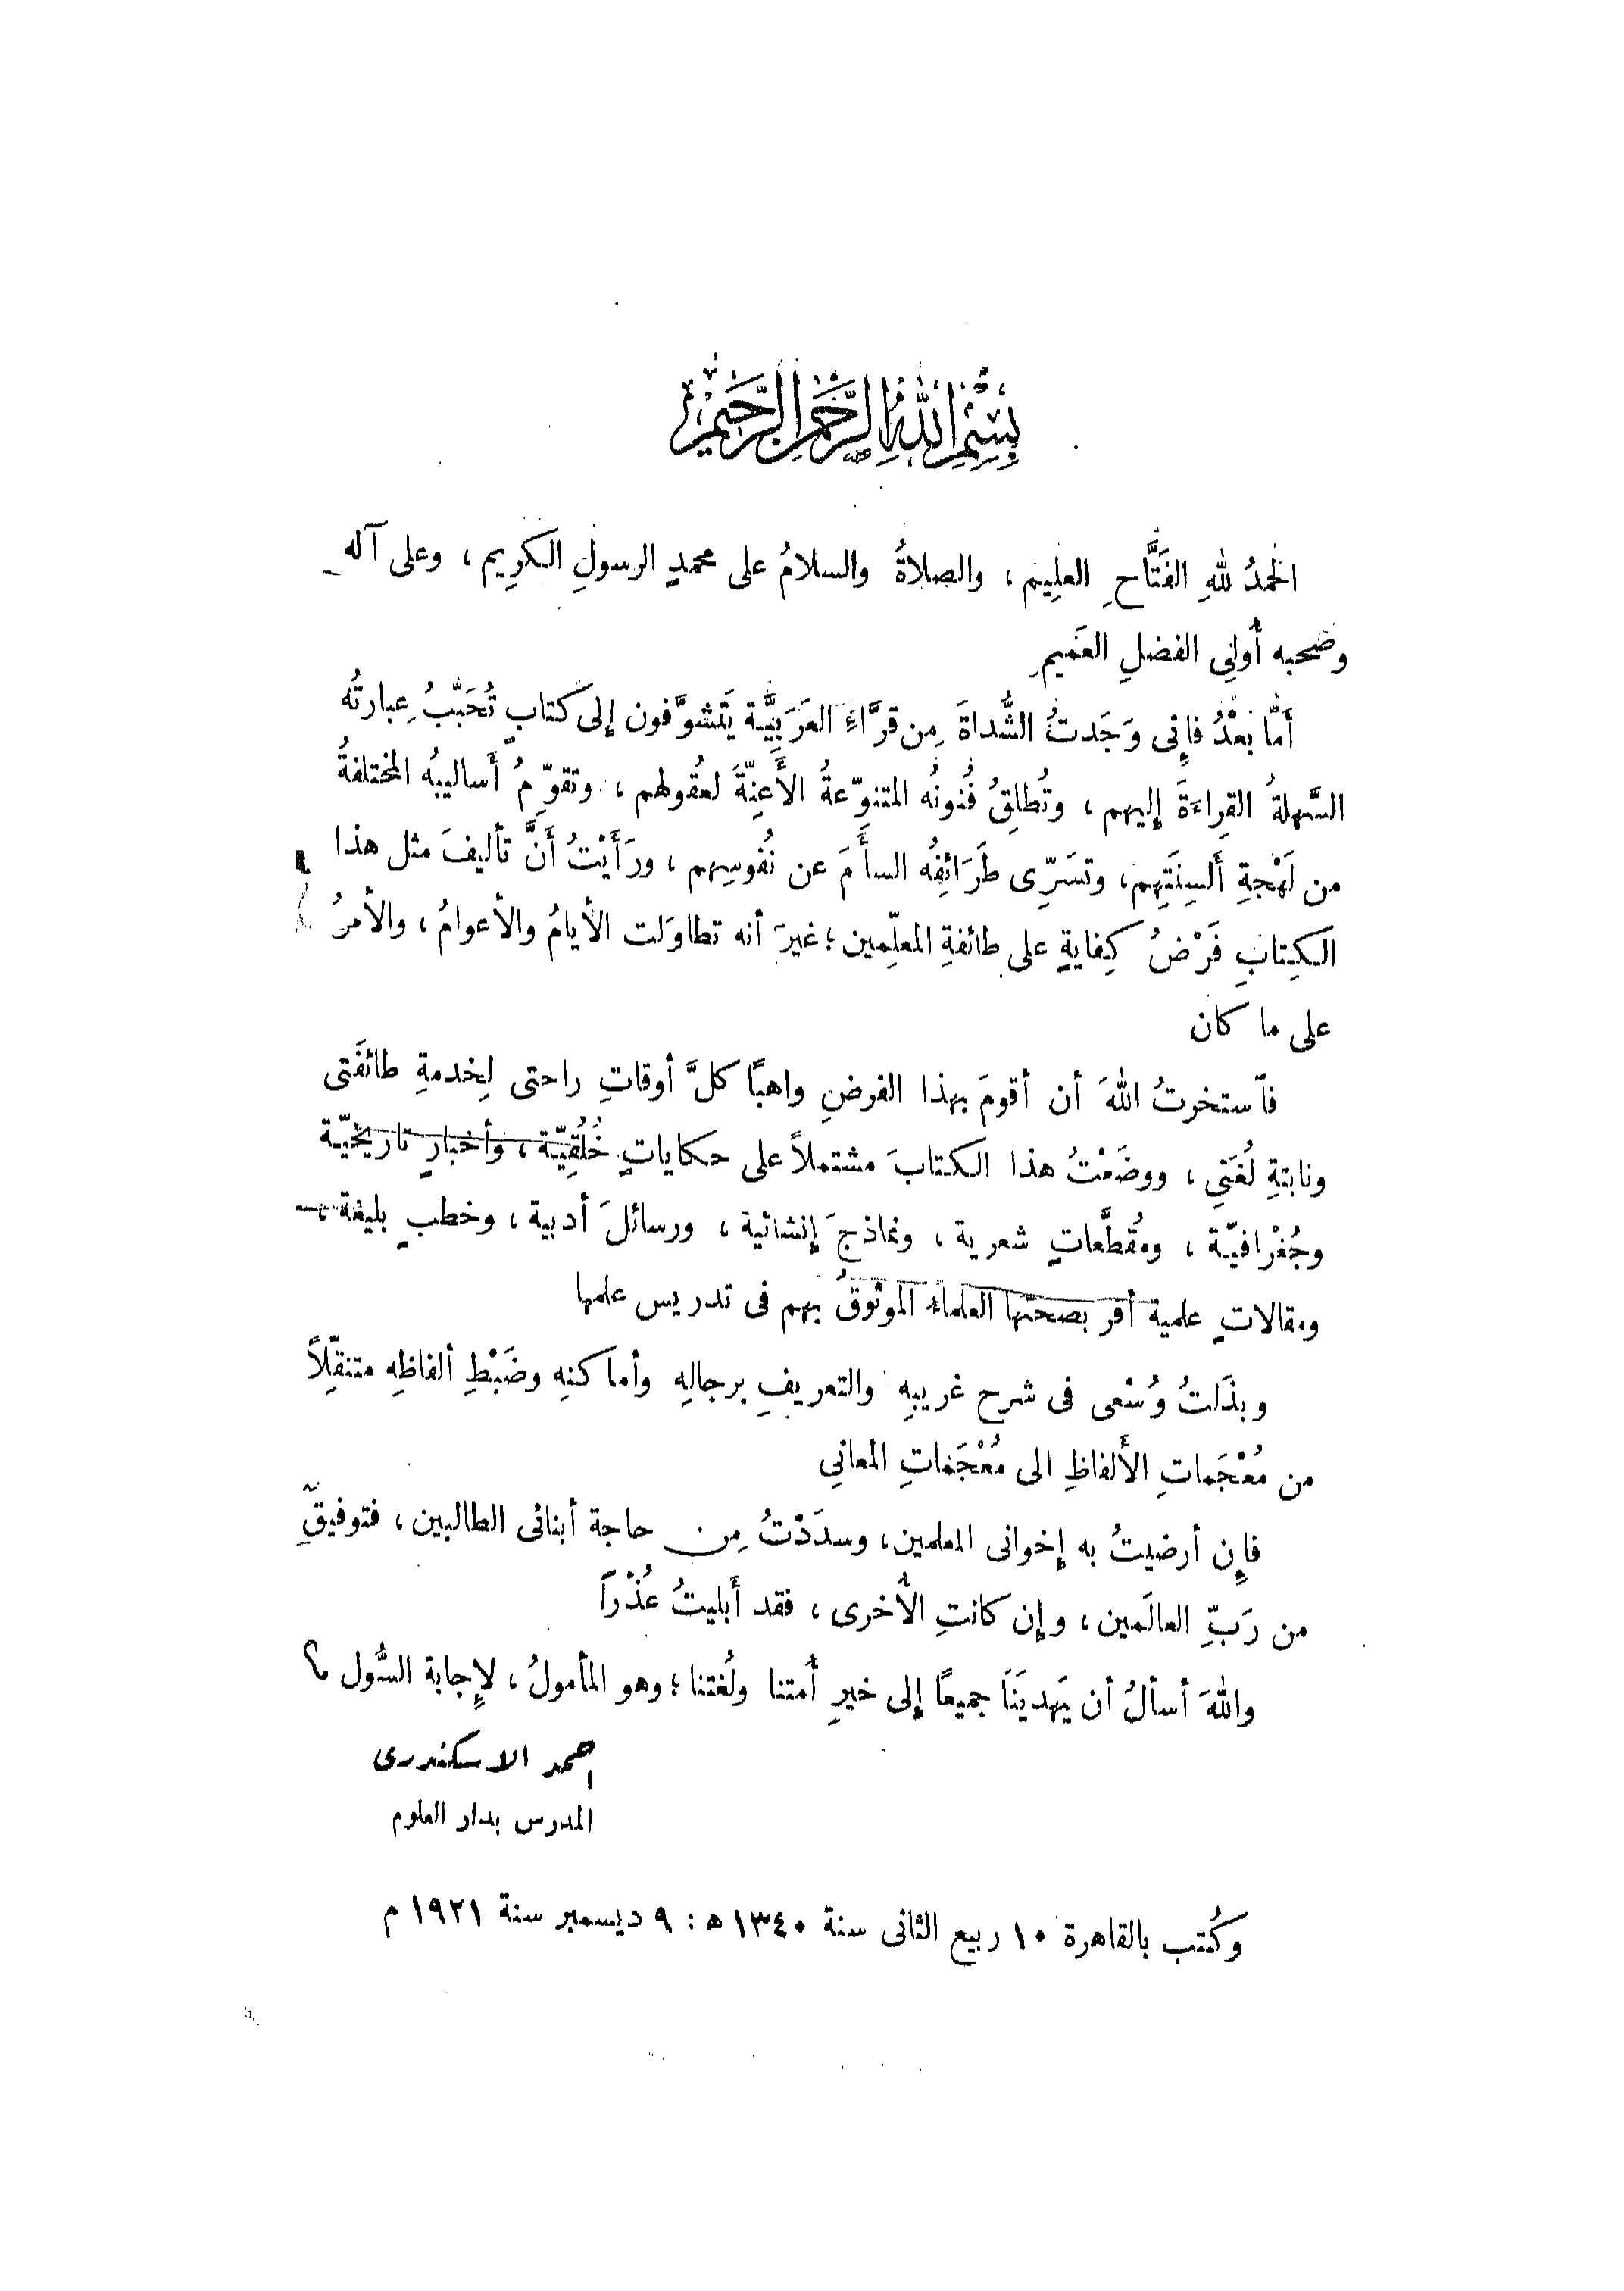 بِسْمِ اللهِ الرَّحْمنِ الرَّحِيمِ
الحمدُ للهِ الفَتَّاحِ العلِيم ، والصلاةُ والسلامُ على محمدٍ الرسولِ الكرِيم ، وعلى آله
وصَحبه أُولِي الفضلِ العَمِيمِ
أَمَّا بعْدُ فإِنى وَجَدتُ الشُّداةَ مِن قرَّاءِ العَرَبِيَّة يَتَشوَّفون إلى كتابٍ تُحَبِّبُ عِبارتُه
السَّهلةُ القِراءَةَ إليهم ، وتُطلِقُ فُنونُه المتنوّعةُ الأَعِنّةَ لعُقولهم ، وتقوّمُ أَساليبُه المختلفةُ
من لَهْجةِ أَلسِنَتِهِم ، وتسَرِّى طَرَائفُه السأَمَ عن نُفوسِهم ، ورَأَيْتُ أَنَّ تأليفَ مثل هذا
الكِتابِ فَرْضُ كِفايةٍ على طائفةِ المعلّمين ؛ غيرَ أنه تطاوَلت الأيامُ والأعوامُ ، والأمرُ
على ما كان
فآستخرتُ اللهَ أن أقومَ بهذا الفرضِ واهبًا كلَّ أوقاتِ راحتى لِخدمةِ طائفَتى
ونابتةِ لُغَتِى ، ووضَعْتُ هذا الكتابَ مشتملاً على حكاياتٍ خُلُقِيّة ، وأخبارٍ تاريخيّة
وجُغْرافيّة ، ومُقطَّعاتٍ شعرية ، ونماذجَ إنشائية ، ورسائلَ أدبية ، وخطبٍ بليغة ،
ومقالاتٍ علمية أقر بصحتها العلماء الموثوقُ بهم فى تدريس علمها
وبذَلتُ وُسْعى فى شرح غريبِهِ والتعريفِ برجالِهِ وأماكنهِ وضَبْطِ ألفاظِه متنقّلاً
من مُعْجَماتِ الأَلفاظِ الى مُعْجَماتِ المعانِي
فإِن أرضيتُ به إخوانى المعلمين ، وسدَدْتُ مِن حاجة أبنائى الطالبين ، فتوفيقٌ
من رَبِّ العالَمين ، وإن كانتِ الأُخرى ، فقد أَبليتُ عُذْرًا
واللهَ أسألُ أن يَهديَنَا جميعًا إلى خيرِ أُمتنا ولُغتنا ؛ وهو المأمولُ ، لإِجابة السُّول ؟
احمد الاسكندرى
المدرس بدار العلوم
وكُتب بالقاهرة ١٠ ربيع الثانى سنة ١٣٤٠ هـ : ٩ ديسمبر سنة ١٩٢١ م